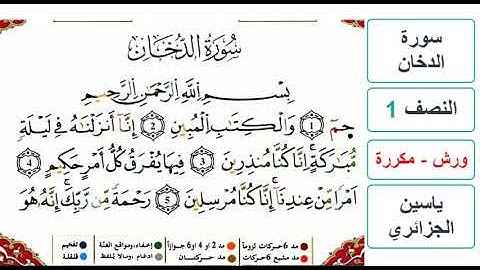 سُورَةُ الدُّخَانِ
بِسْمِ اللَّهِ الرَّحْمَٰنِ الرَّحِيمِ
حٓمٓ 1 وَالْكِتَٰبِ الْمُبِينِ 2 إِنَّآ أَنزَلْنَٰهُ فِے لَيْلَةٖ
مُّبَٰرَكَةٍۖ اِنَّا كُنَّا مُنذِرِينَ 3 فِيهَا يُفْرَقُ كُلُّ أَمْرٍ حَكِيمٍ 4
اَمْراٗ مِّنْ عِندِنَآۖ إِنَّا كُنَّا مُرْسِلِينَ 5 رَحْمَةٗ مِّن رَّبِّكَۖ إِنَّهُۥ هُوَ
مد 6 حركات لزوماً
مد 2 أو 4 أو 6 جوازاً
إخفاء، ومواقع الغنّة
تفخيم
مد مشبع 6 حركات
مد حركتان
ادغام ، ومالا يُلفظ
قلقلة
سورة
الدخان
النصف 1
ورش - مكررة
ياسين
الجزائري